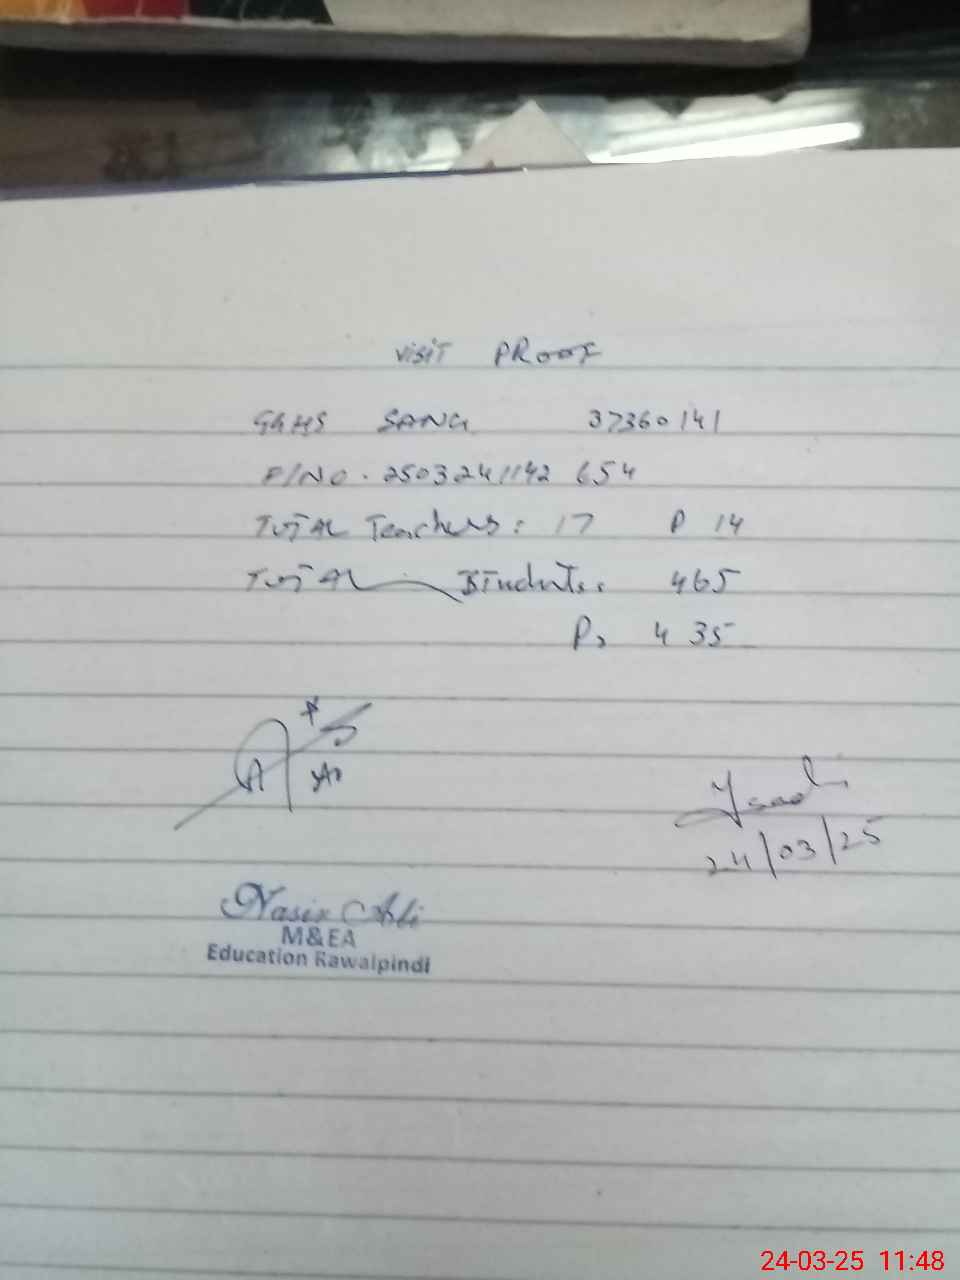 VISIT PROOF
GGHS SANG 37360141
F/NO. 2503241142 654
TOTAL Teachers: 17 P 14
TOTAL Students: 465
P, 435
24/03/25
Nasir Ali
M&EA
Education Rawalpindi
24-03-25 11:48